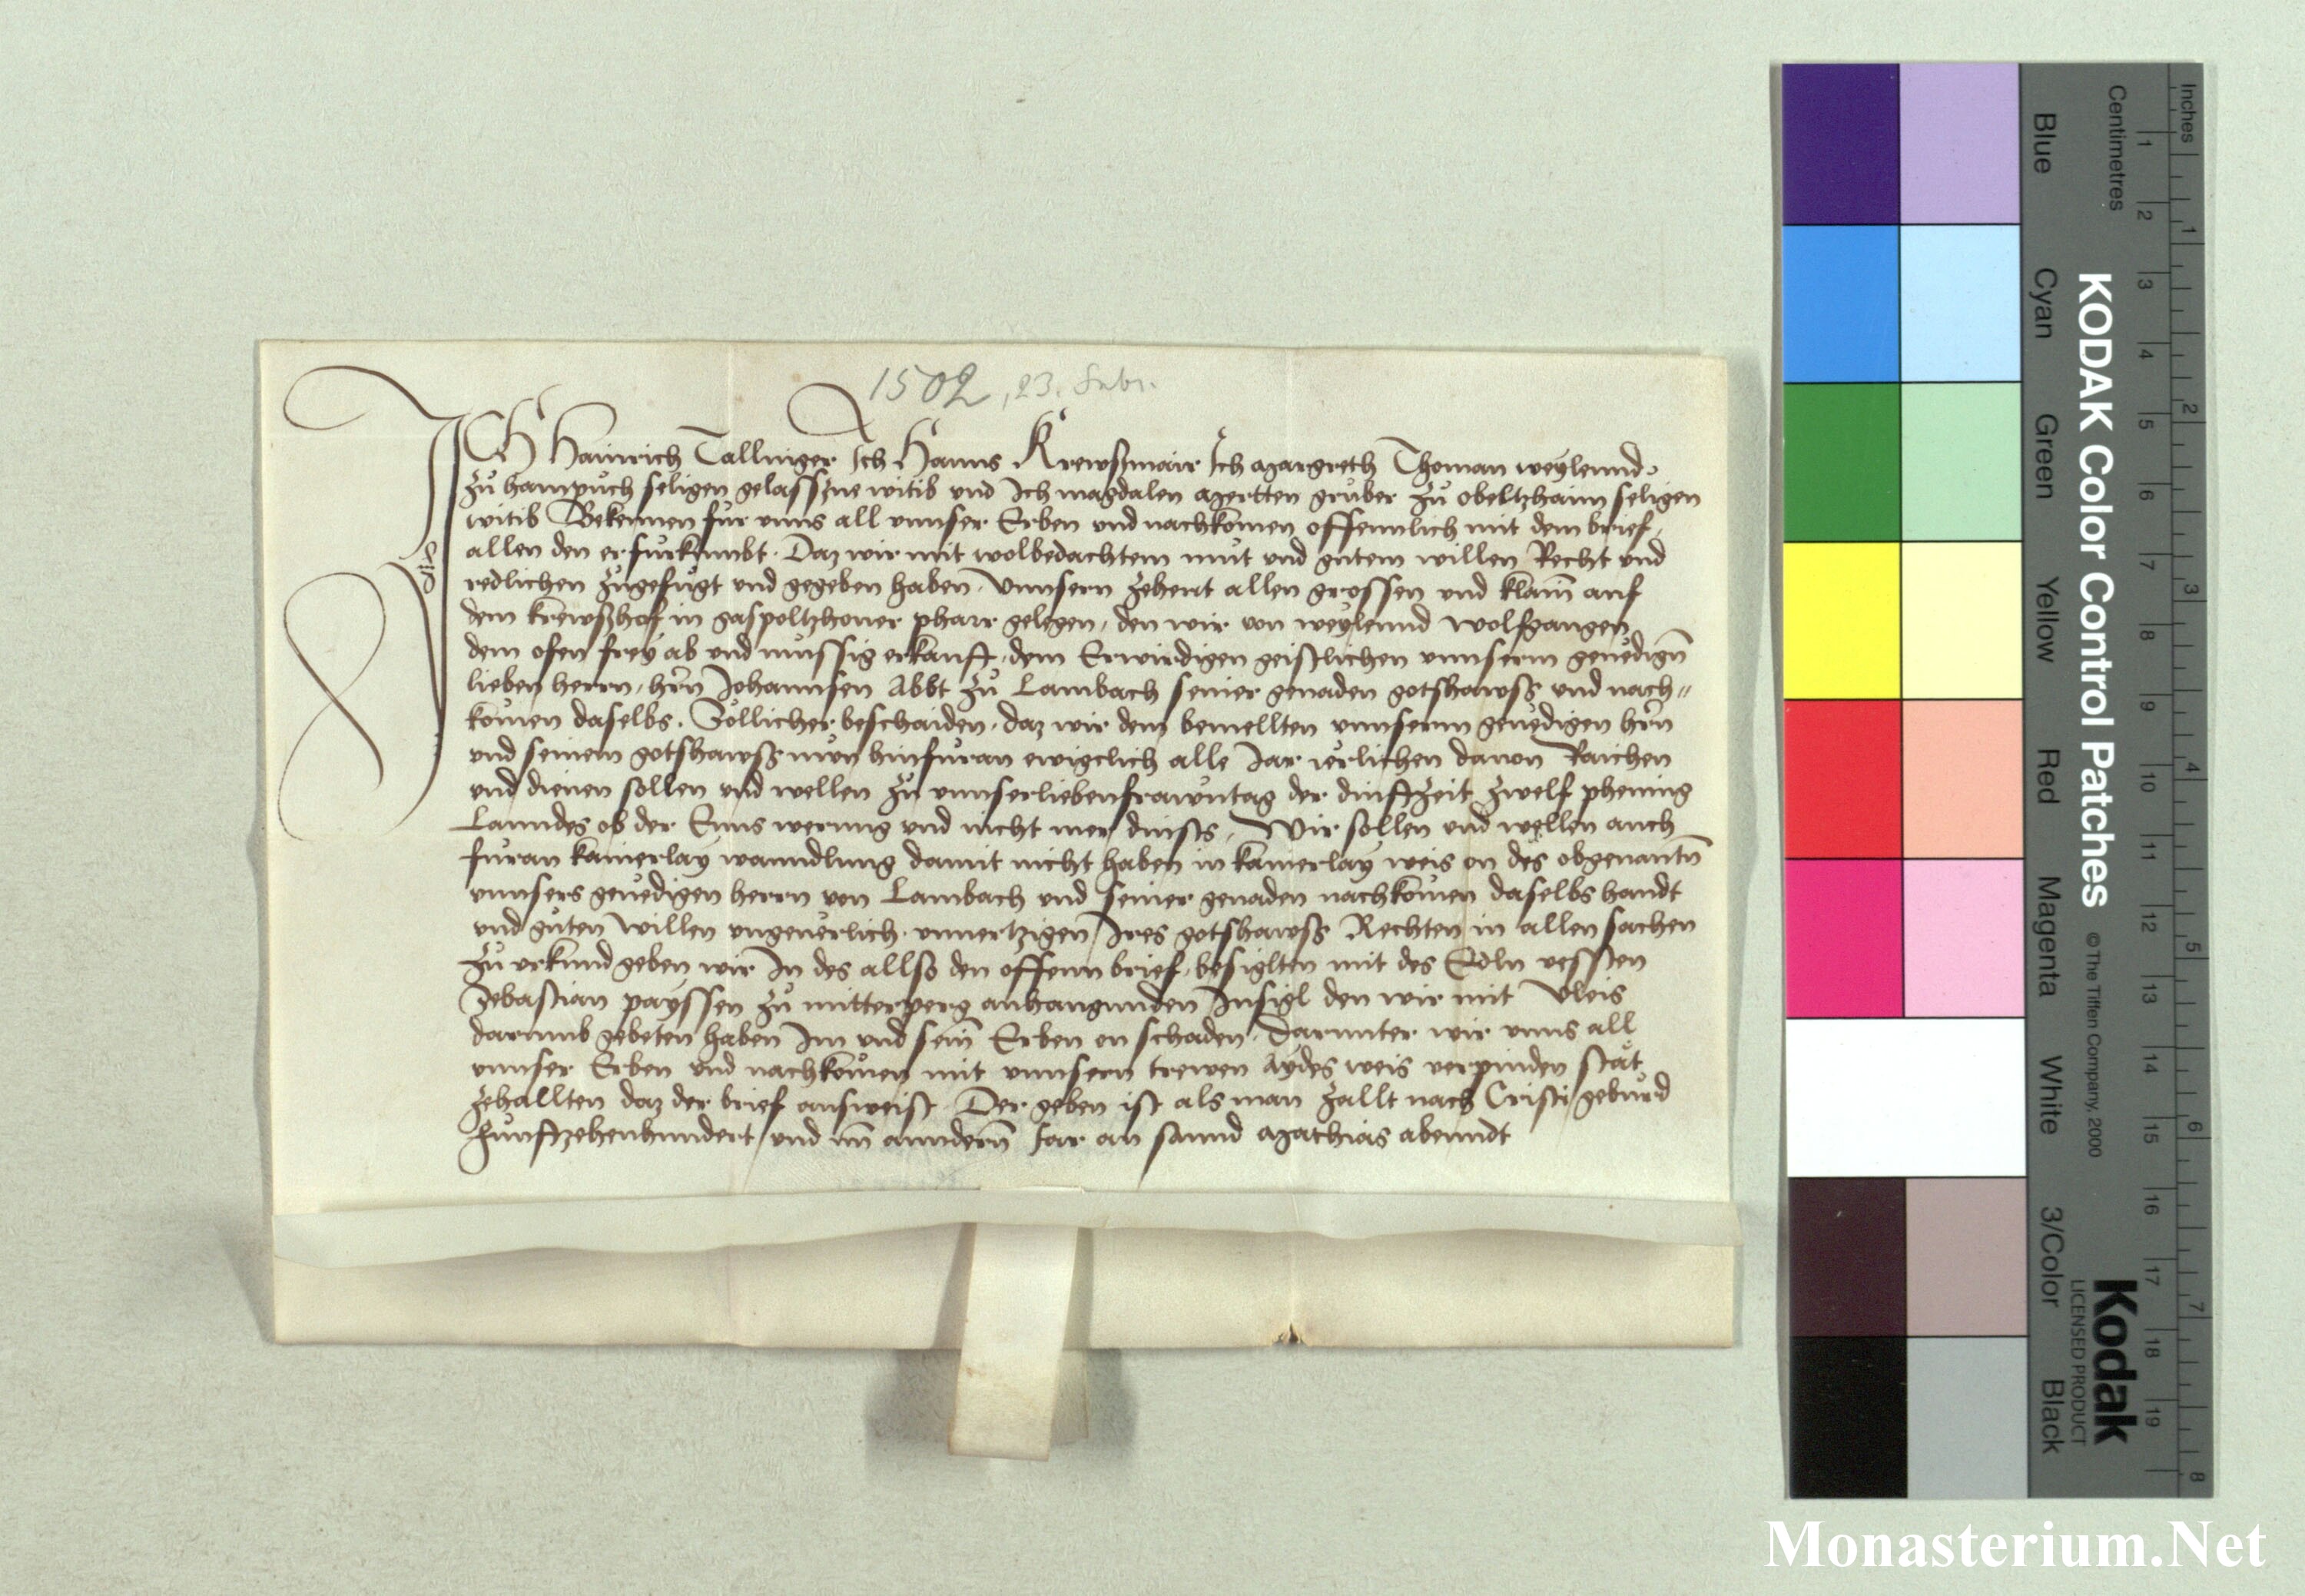 1502, 23. Febr.
ICH Hainrich Tallinger Ich Hanns Krewszmair Ich Margreth Thoman weylennd
zů hampůch seligen gelasszne witib vnd Ich magdalen Mertten grůber zů obeltzhaim seligen
witib Bekennen fůr vnns all vnnser Erben vnd nachkomen offennlich mit dem brief
allen den er fůrkumbt. Daz wir mit wolbedachtem můt vnd gůtem willen Recht vnd
redlichen zůgefůgt vnd gegeben haben. Vnnsern zehent allen grossen vnd klain auf
dem krewszhof in gaspoltzhouer pharr gelegen, den wir von weylennd wolfgangen
dem ofen frey ab vnd můssig erkaufft, dem Erwirdigen geistlichen vnnserm genědign
lieben herrn, hrn Johannsen Abbt zů Lambach seiner genaden gotshawss vnd nach=
komen daselbs. Sŏllicher beschaiden, daz wir dem bemellten vnnserm genědigen hrn
vnd seinem gotshawss nůn hinfůran ewigclich alle Jar iěrlichen dauon Raichen
vnd dienen sollen vnd wellen zů vnnserliebenfrawntag der dinstzeit zwelf phening
Lanndes ob der Enns werung vnd nicht mer dinsts, Wir sollen vnd wellen auch
fůran kainerlay wanndlung damit nicht haben in kainerlay weis on des obgenantn
vnnsers genědigen herrn von Lambach vnd seiner genaden nachkomen daselbs handt
vnd gůten willen vngeuěrlich. vnuertzigen Ires gotshawss Rechten in allen sachen
zů vrkund geben wir In des allso den offenn brief, besiglten mit des Edln vessten
Sebastian payssen zů mitterperg anhangunden Insigl den wir mit Vleis
darumb gebeten haben Im vnd sein Erben on schaden. Darunter wir vnns all
vnnser Erben vnd nachkomen mit vnnsern trewen Aydes weis verpinden stăt
zehallten daz der brief ausweist. Der geben ist als man zallt nach Cristi gebůrd
Fůnftzehenhundert vnd im anndern Jar an sannd Mathias abenndt
Inches
Centimetres
1 2 3 4 5 6 7 8 9 10 11 12 13 14 15 16 17 18 19
1 2 3 4 5 6 7 8
KODAK Color Control Patches
© The Tiffen Company, 2000
Kodak
LICENSED PRODUCT
Blue Cyan Green Yellow Red Magenta White 3/Color Black
Monasterium.Net